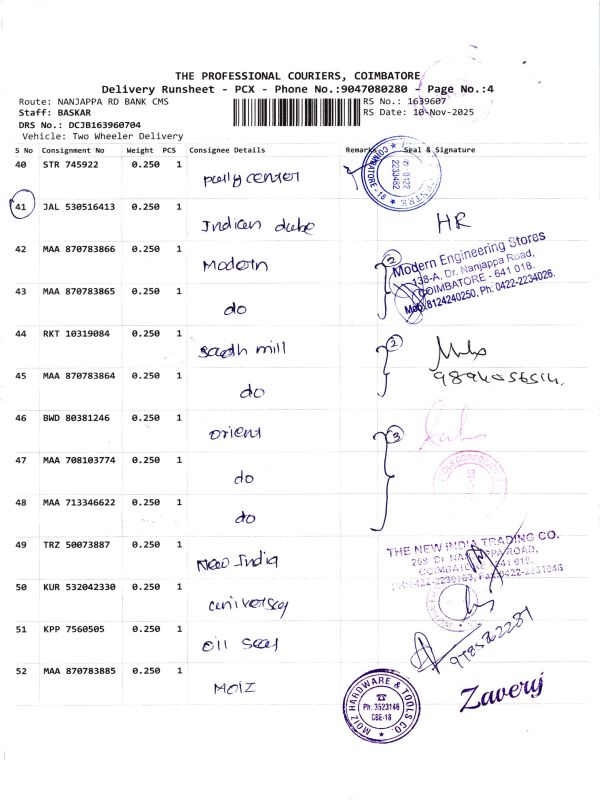 THE PROFESSIONAL COURIERS, COIMBATORE
Delivery Runsheet - PCX - Phone No.:9047080280 - Page No.:4
Route: NANJAPPA RD BANK CMS
RS No.: 1639607
Staff: BASKAR
RS Date: 10-Nov-2025
DRS No.: DCJB163960704
Vehicle: Two Wheeler Delivery
S No Consignment No Weight PCS Consignee Details Remarks Seal & Signature
40 STR 745922 0.250 1
COIMBATORE - 18
2233482
41 JAL 530516413 0.250 1
Indian HR
42 MAA 870783866 0.250 1
Modern 2
Modern Engineering Stores
138-A, Dr. Nanjappa Road,
COIMBATORE - 641 018.
Mob: 8124240250, Ph: 0422-2234026.
43 MAA 870783865 0.250 1
do
44 RKT 10319084 0.250 1
mill 2
45 MAA 870783864 0.250 1
do
46 BWD 80381246 0.250 1
orient 3
47 MAA 708103774 0.250 1
do
48 MAA 713346622 0.250 1
do
49 TRZ 50073887 0.250 1
New India
THE NEW INDIA TRADING CO.
50 KUR 532042330 0.250 1
51 KPP 7560505 0.250 1
oil seal
52 MAA 870783885 0.250 1
MOIZ
MOIZ HARDWARE & TOOLS CO.
Ph: 3523146
CBE-18
Zavery